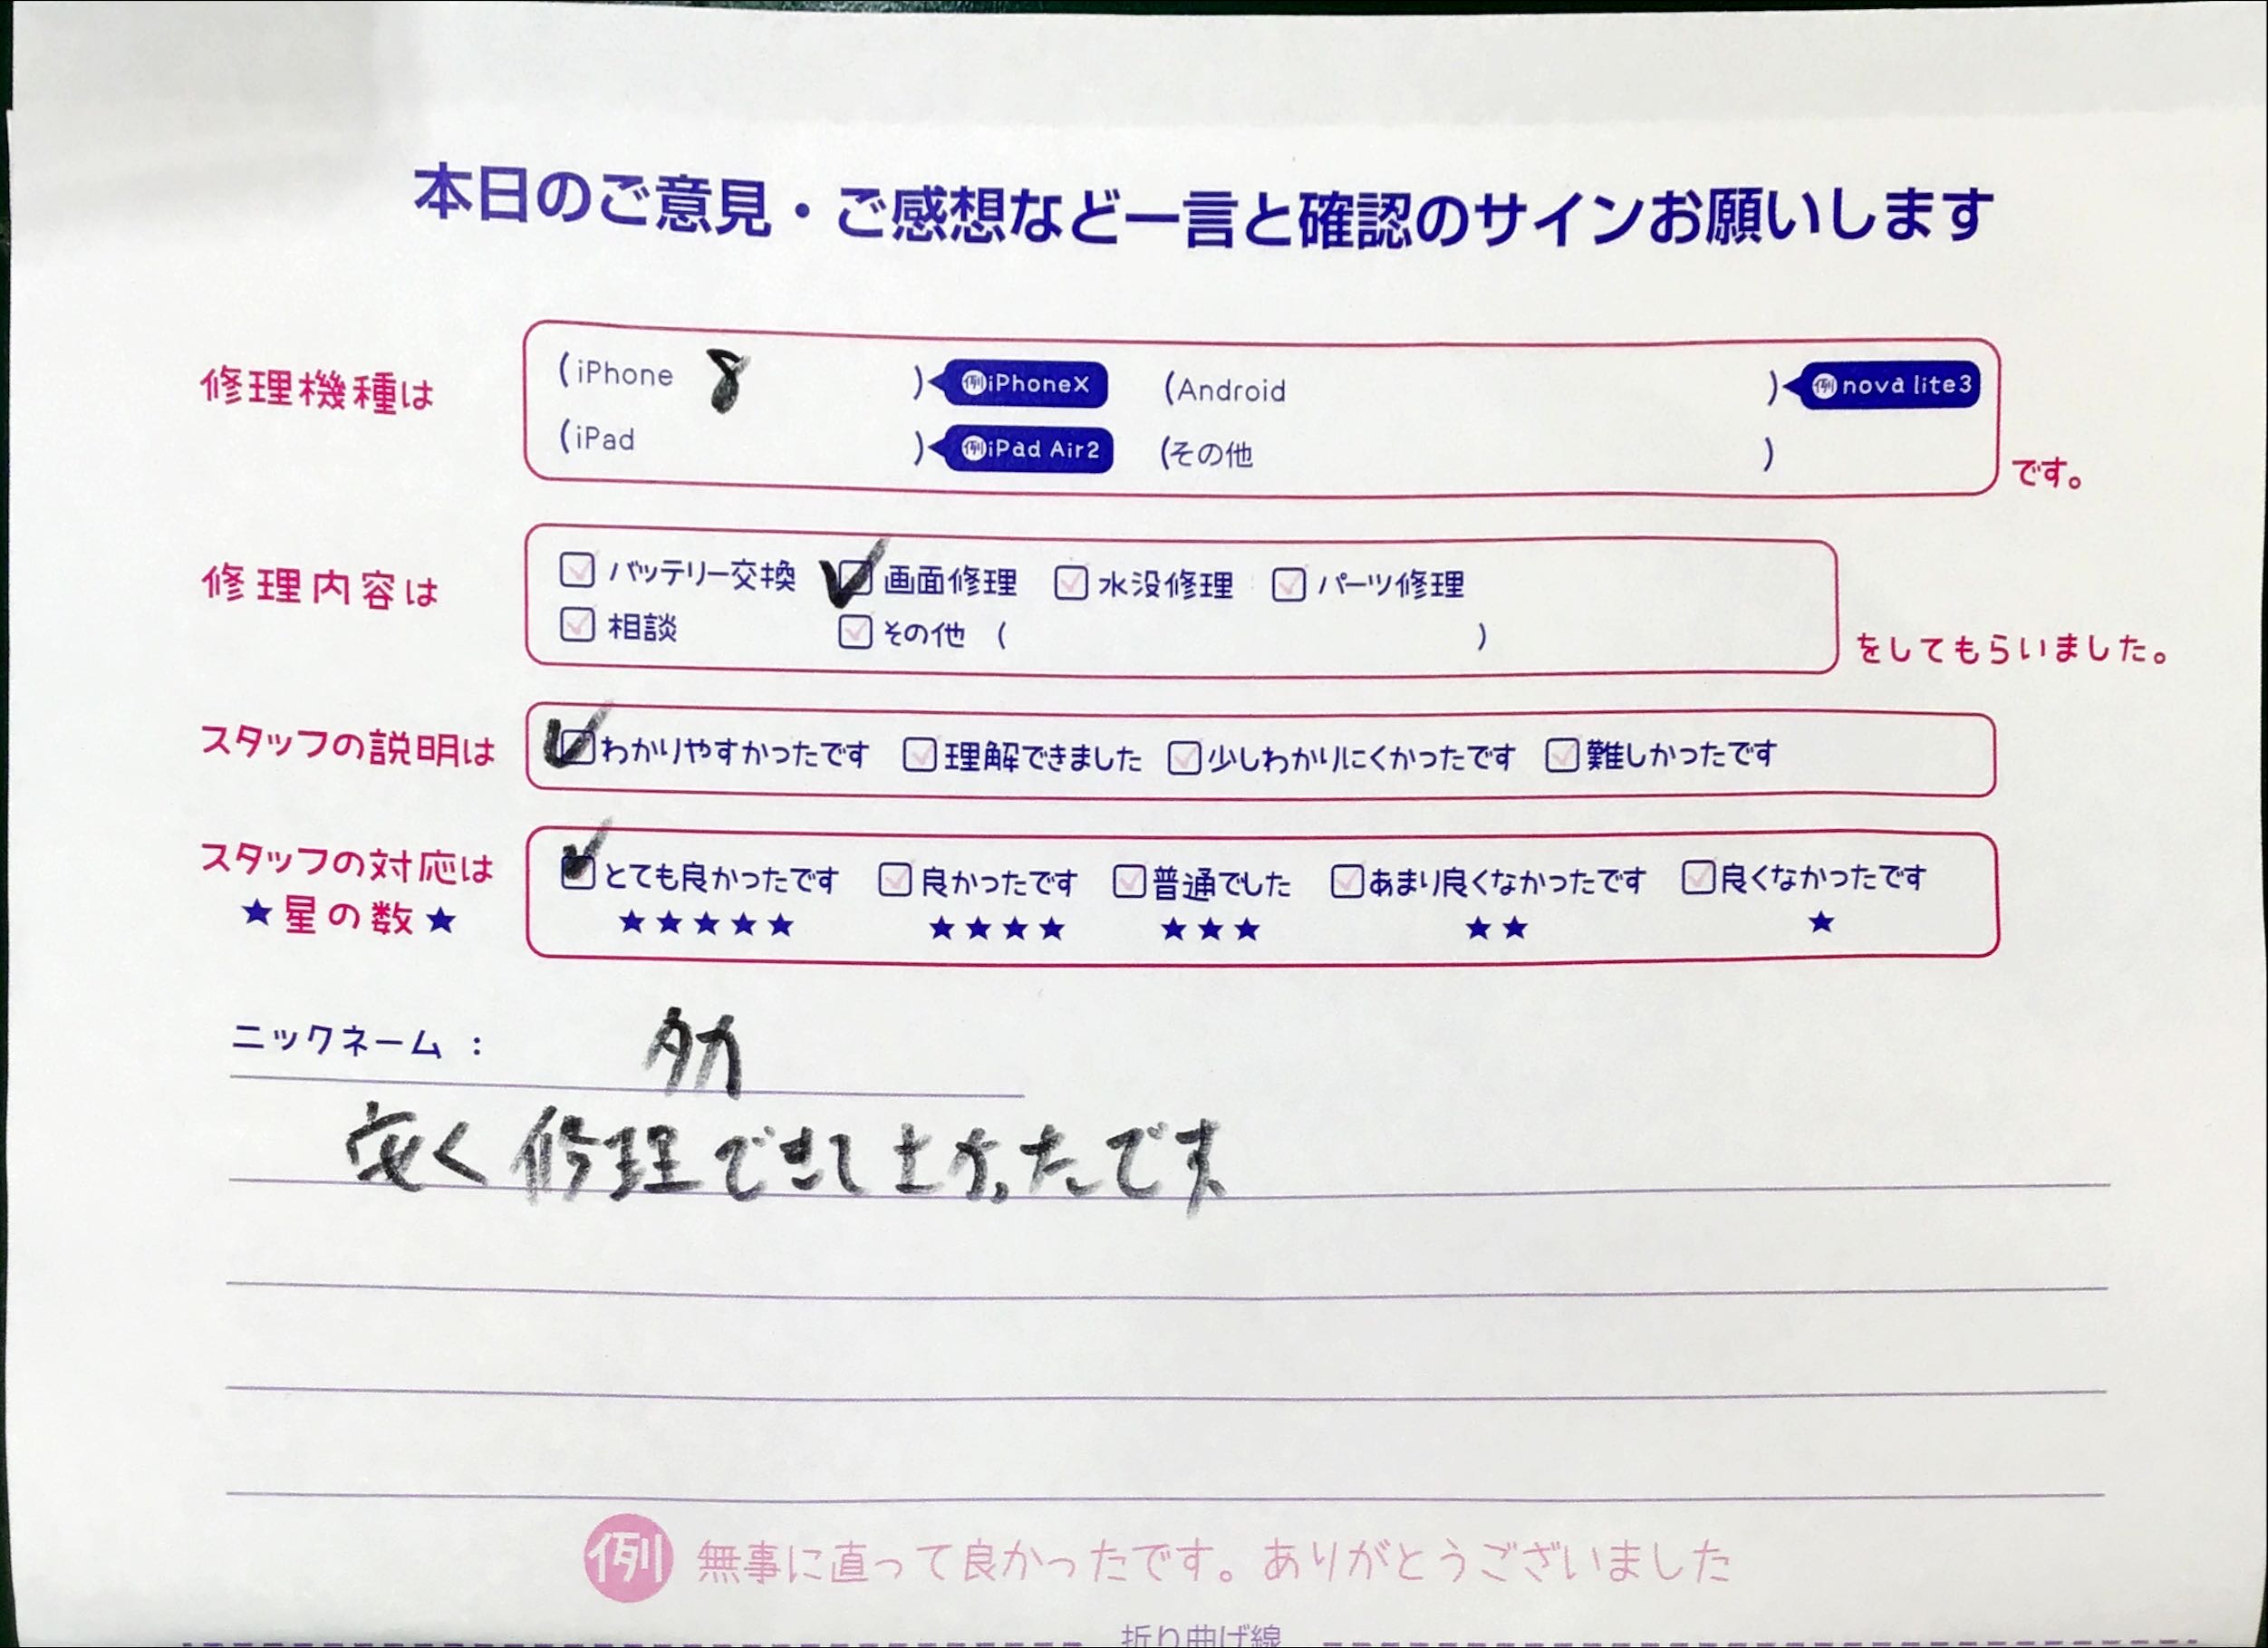 本日のご意見・ご感想など一言と確認のサインお願いします
修理機種は (iPhone 8 ) 例iPhoneX (Android ) 例nova lite3
(iPad ) 例iPad Air2 (その他 ) です。
修理内容は バッテリー交換 画面修理 水没修理 パーツ修理
相談 その他 ( ) をしてもらいました。
スタッフの説明は わかりやすかったです 理解できました 少しわかりにくかったです 難しかったです
スタッフの対応は とても良かったです 良かったです 普通でした あまり良くなかったです 良くなかったです
★星の数★ ★★★★★ ★★★★ ★★★ ★★ ★
ニックネーム : タカ
安く修理できてよかったです
例 無事に直って良かったです。ありがとうございました
折り曲げ線